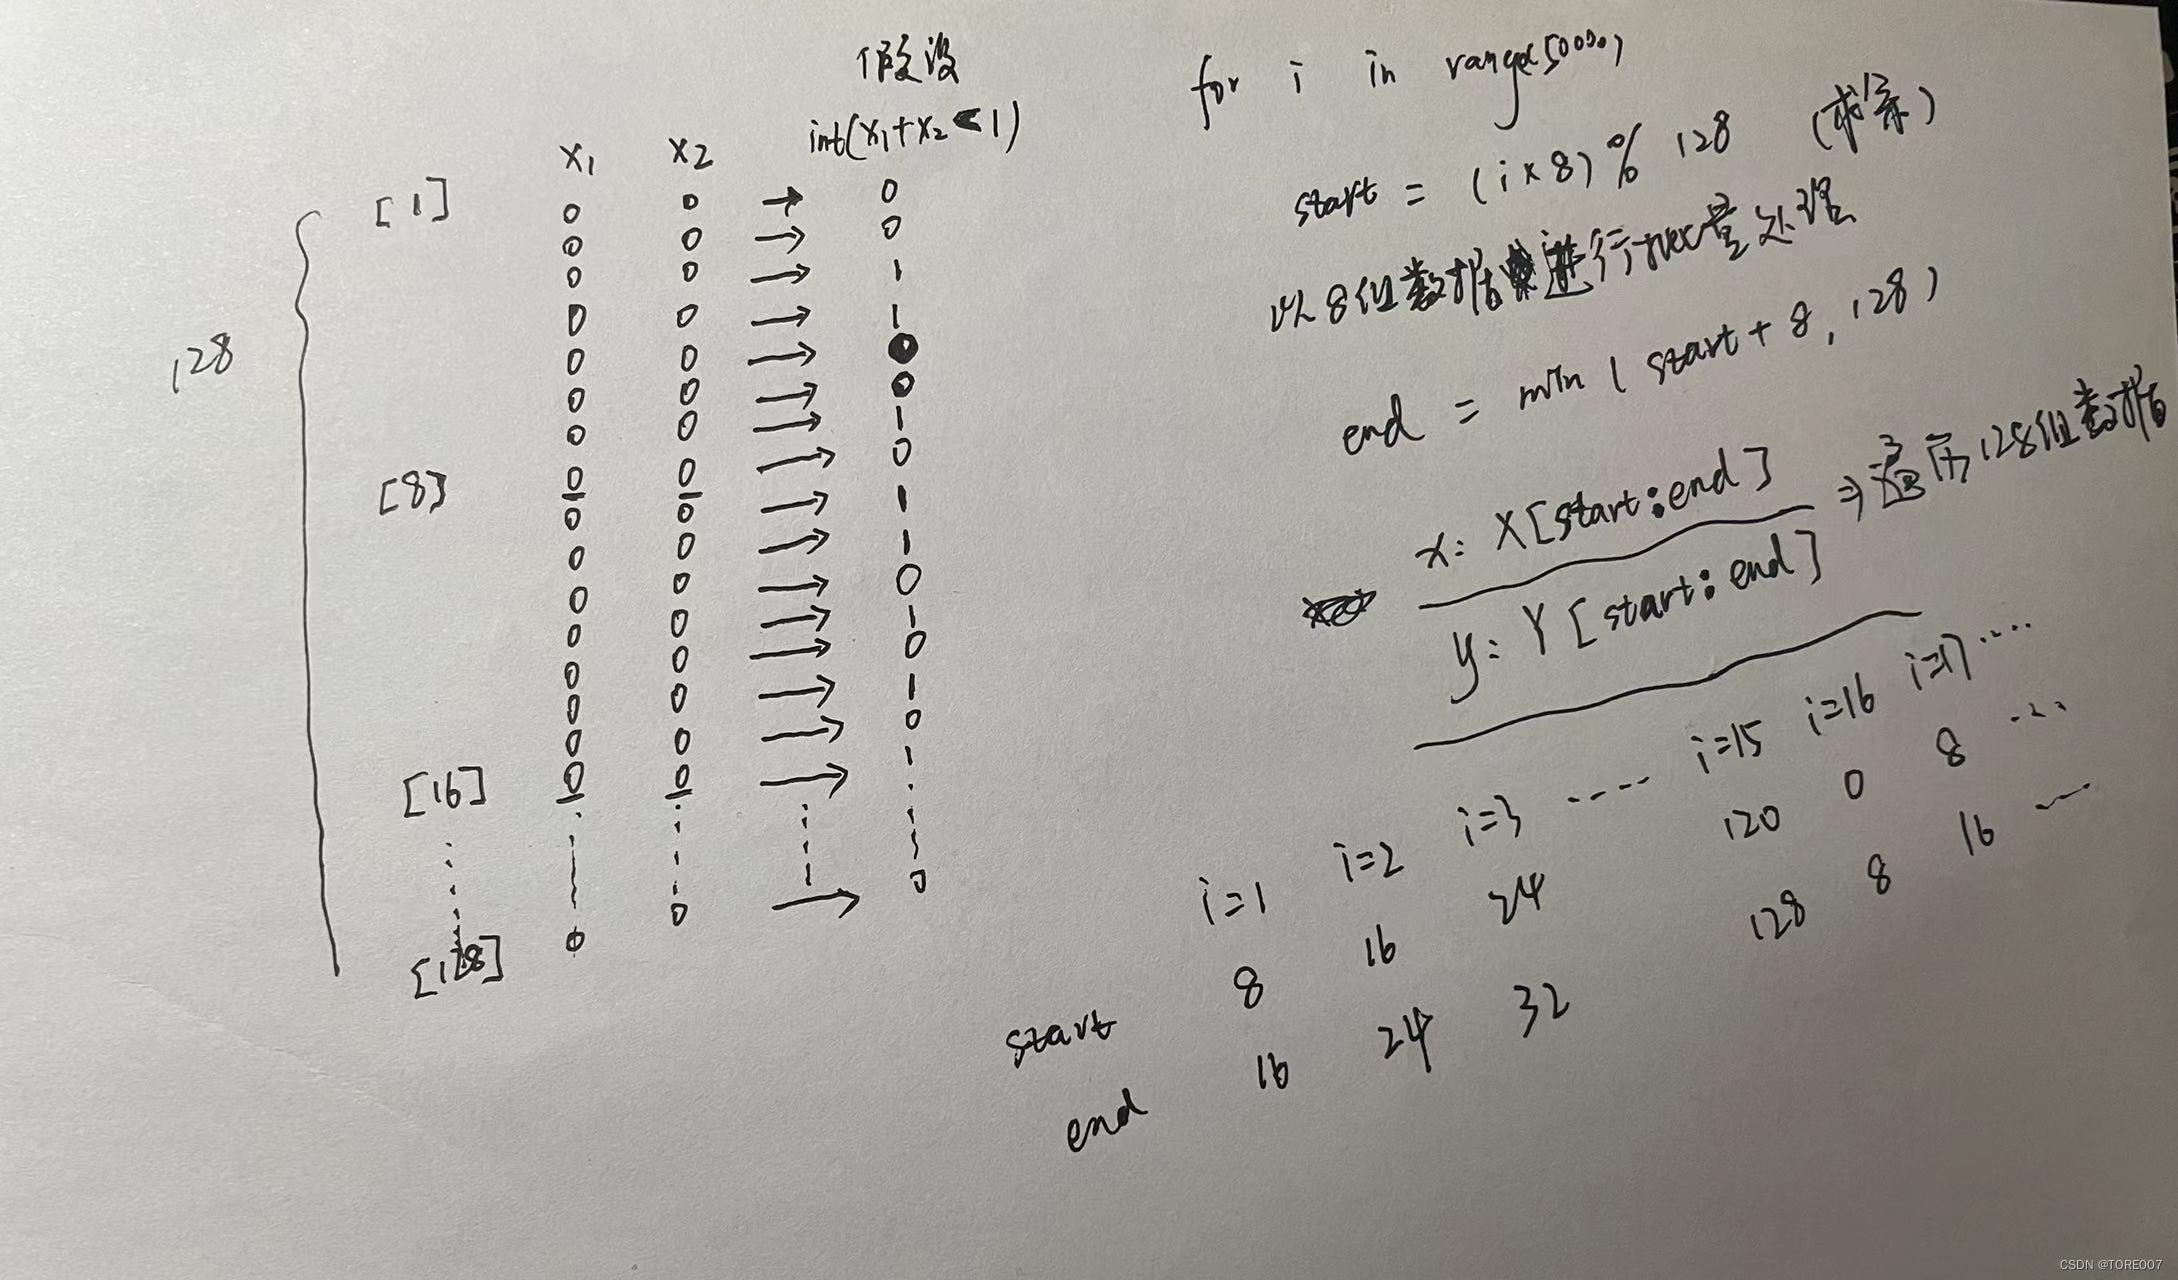 假设
int(x₁+x₂<1)
x₁ x₂
128
[1] 0 0 → 0
0 0 → 0
0 0 → 1
0 0 → 1
0 0 → 0
0 0 → 0
0 0 → 1
[8] 0 0 → 0
0 0 → 1
0 0 → 1
0 0 → 0
0 0 → 1
0 0 → 0
0 0 → 1
0 0 → 0
[16] 0 0 → 1
[128] 0 0 → 0
for i in range(5000)
start = (i×8)%128 (求余)
以8组数据进行批量处理
end = min(start+8,128)
x: X[start:end]
⇒遍历128组数据
y: Y[start:end]
i=1 i=2 i=3 ···· i=15 i=16 i=17 ····
start 8 16 24 120 0 8 ···
end 16 24 32 128 8 16 ···
CSDN @TORE007